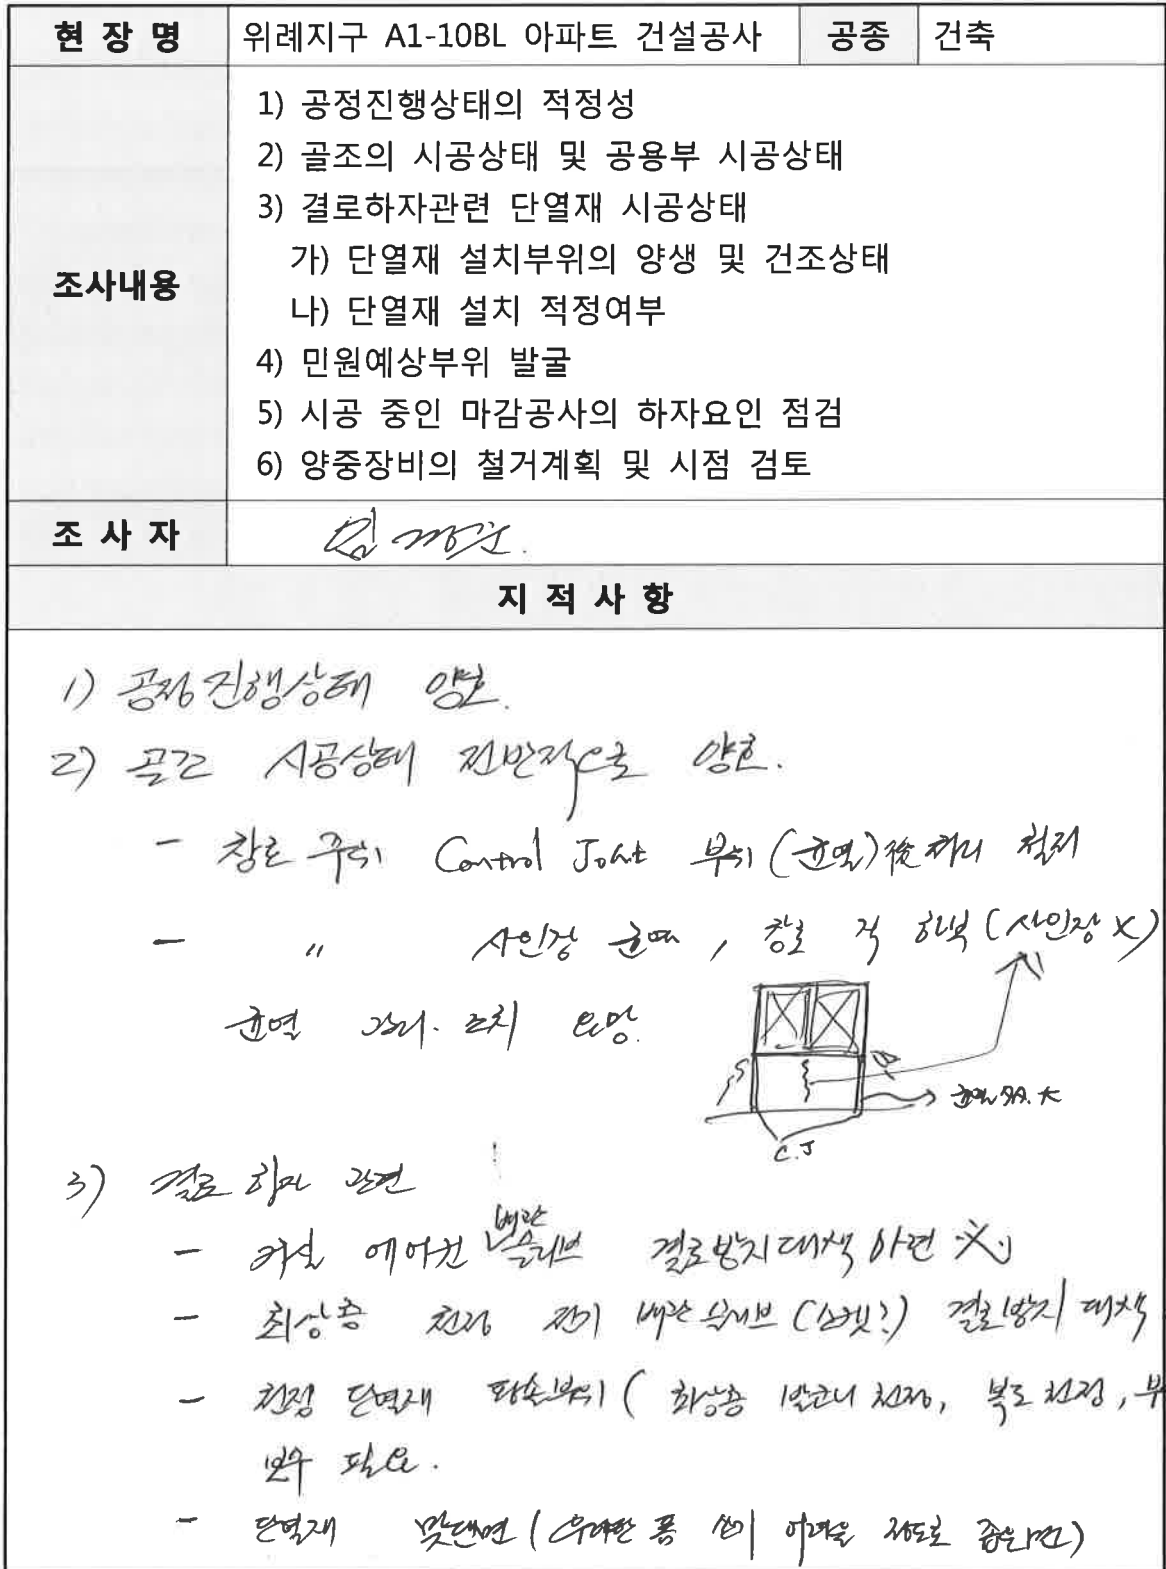 현 장 명 위례지구 A1-10BL 아파트 건설공사 공종 건축
조사내용
1) 공정진행상태의 적정성
2) 골조의 시공상태 및 공용부 시공상태
3) 결로하자관련 단열재 시공상태
가) 단열재 설치부위의 양생 및 건조상태
나) 단열재 설치 적정여부
4) 민원예상부위 발굴
5) 시공 중인 마감공사의 하자요인 점검
6) 양중장비의 철거계획 및 시점 검토
조 사 자
지 적 사 항
1) 공정진행상태 양호.
2) 골조 시공상태 전반적으로 양호.
- 창호 주위 Control Joint 부위 (균열) 後처리 철저
- " 사인장 균열, 창호 직 하부 (사인장 X)
균열 관리. 조치 요망.
C.J
3) 결로 하자 관련
- 거실 에어컨 배관 슬리브 결로방지대책 마련 ※
- 최상층 천정 전기 배관 슬리브 (소켓?) 결로방지 대책
- 천정 단열재 파손부위 ( 최상층 발코니 천정, 복도 천정,
보수 필요.
- 단열재 맞댄면 (우레탄 폼 쏘기 어려울 정도로 좁은 면)